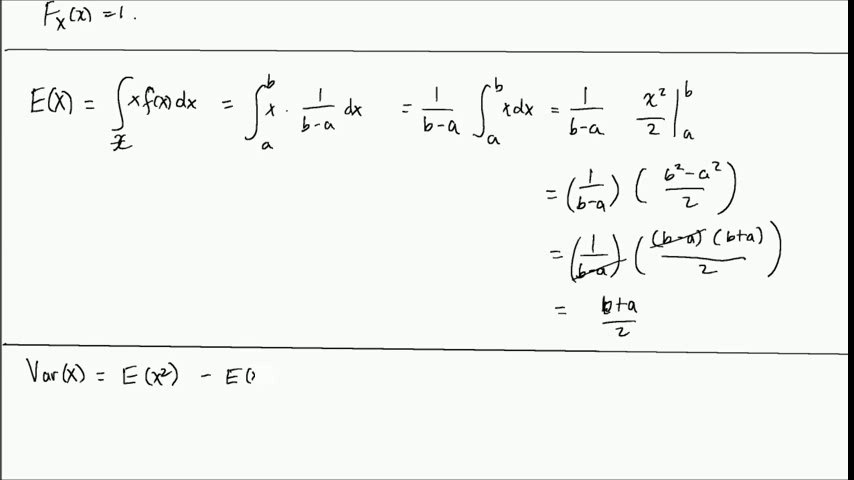 F_X(x) = 1.
E(X) = ∫_𝒳 x f(x) dx = ∫_a^b x · 1/(b-a) dx = 1/(b-a) ∫_a^b x dx = 1/(b-a) x²/2 |_a^b
= (1/(b-a)) ((b²-a²)/2)
= (1/(b-a)) ((b-a)(b+a)/2)
= (b+a)/2
Var(X) = E(X²) - E(